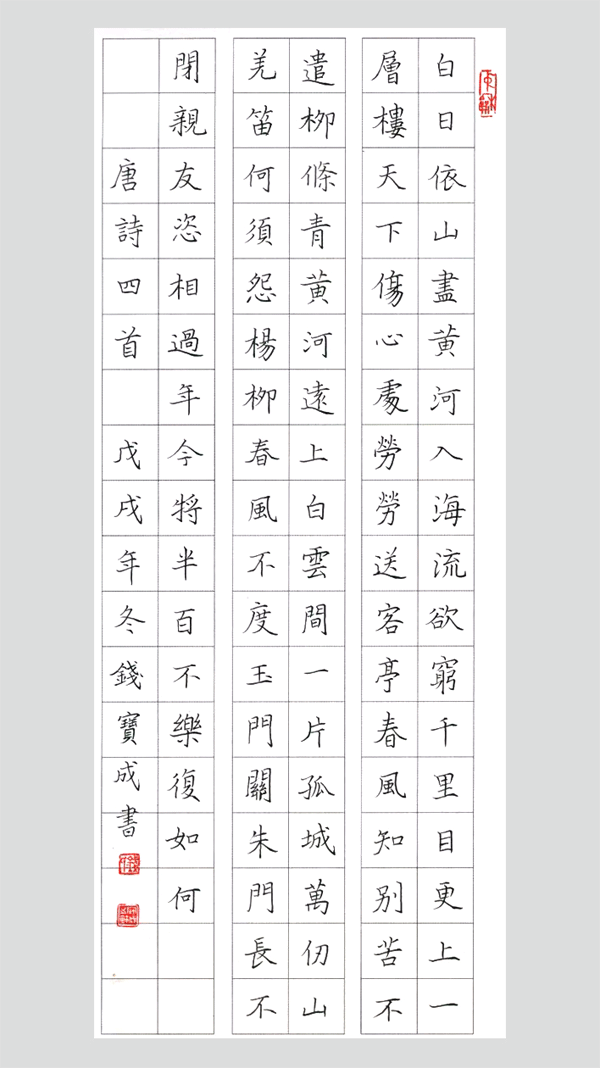 白日依山盡黃河入海流欲窮千里目更上一
層樓天下傷心處勞勞送客亭春風知別苦不
遣柳條青黃河遠上白雲間一片孤城萬仞山
羌笛何須怨楊柳春風不度玉門關朱門長不
閉親友恣相過年今將半百不樂復如何
唐詩四首 戊戌年冬錢寶成書